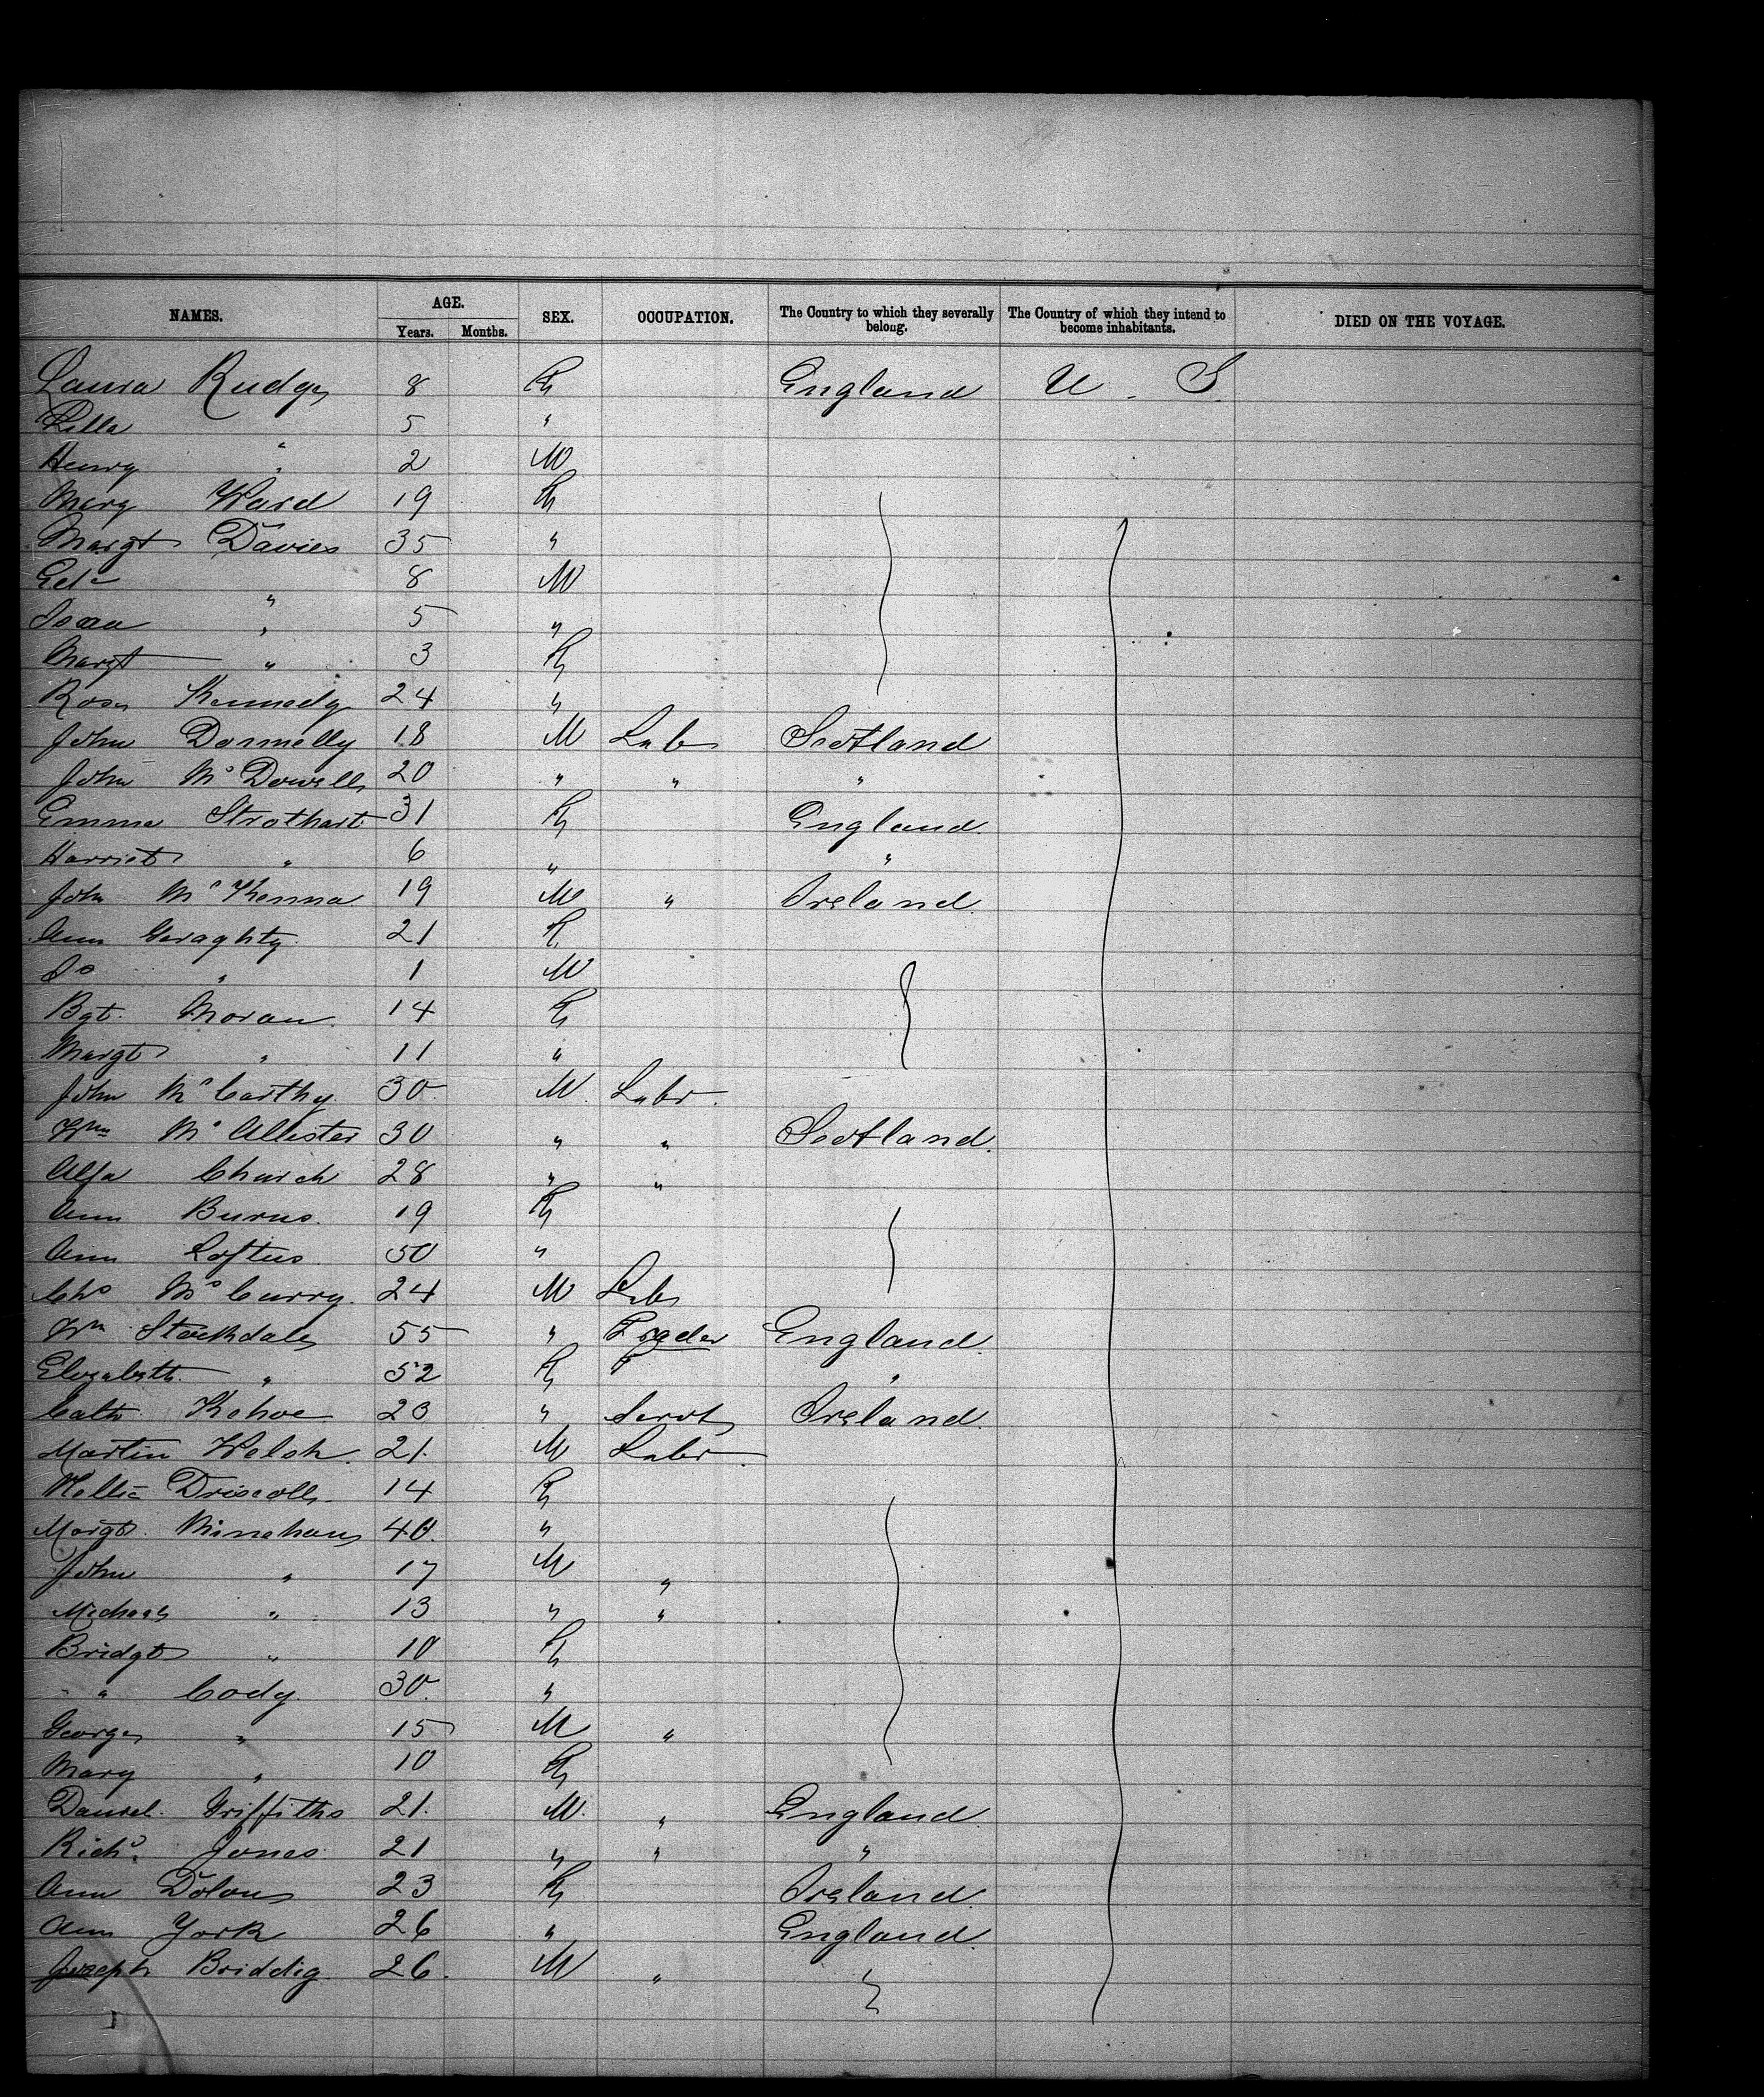 NAMES. AGE. SEX. OCCUPATION. The Country to which they severally belong. The Country of which they intend to become inhabitants. DIED ON THE VOYAGE.
Years. Months.
Laura Rudge 8 F England U. S.
Lilla " 5 "
Henry " 2 M
Mary Ward 19 F
Margt Davies 35 "
Edd " 8 M
Isaa " 5 "
Margt " 3 F
Rose Kennedy 24 "
John Donnelly 18 M Lab Scotland
John Mc Dowell 20 " " "
Emma Strothart 31 F England
Harriet " 6 " "
John Mc Kenna 19 M " Ireland
Ann Geraghty 21 F
Do " 1 M
Bgt. Moran 14 F
Margt " 11 "
John Mc Carthy 30 M. Labr.
Wm Mc Allister 30 " " Scotland.
Alfd Church 28 " "
Ann Burns. 19 F
Ann Loftus 50 "
Chs Mc Curry. 24 M Lab
Wm Stockdale 55 " Trader England.
Elizabeth " 52 F "
Cath Kehoe 23 " Servt Ireland
Martin Welsh. 21. M Labr.
Nellie Driscoll 14 F
Margt. Minehan 40. "
John " 17 M "
Michael " 13 " "
Bridgt " 10 F
" Cody. 30. "
George " 15 M "
Mary " 10 F
Daniel. Griffiths 21. M. " England
Richd. Jones 21 " " "
Ann Dolan 23 F Ireland
Ann York 26 " England
Joseph Briddig 26. M "